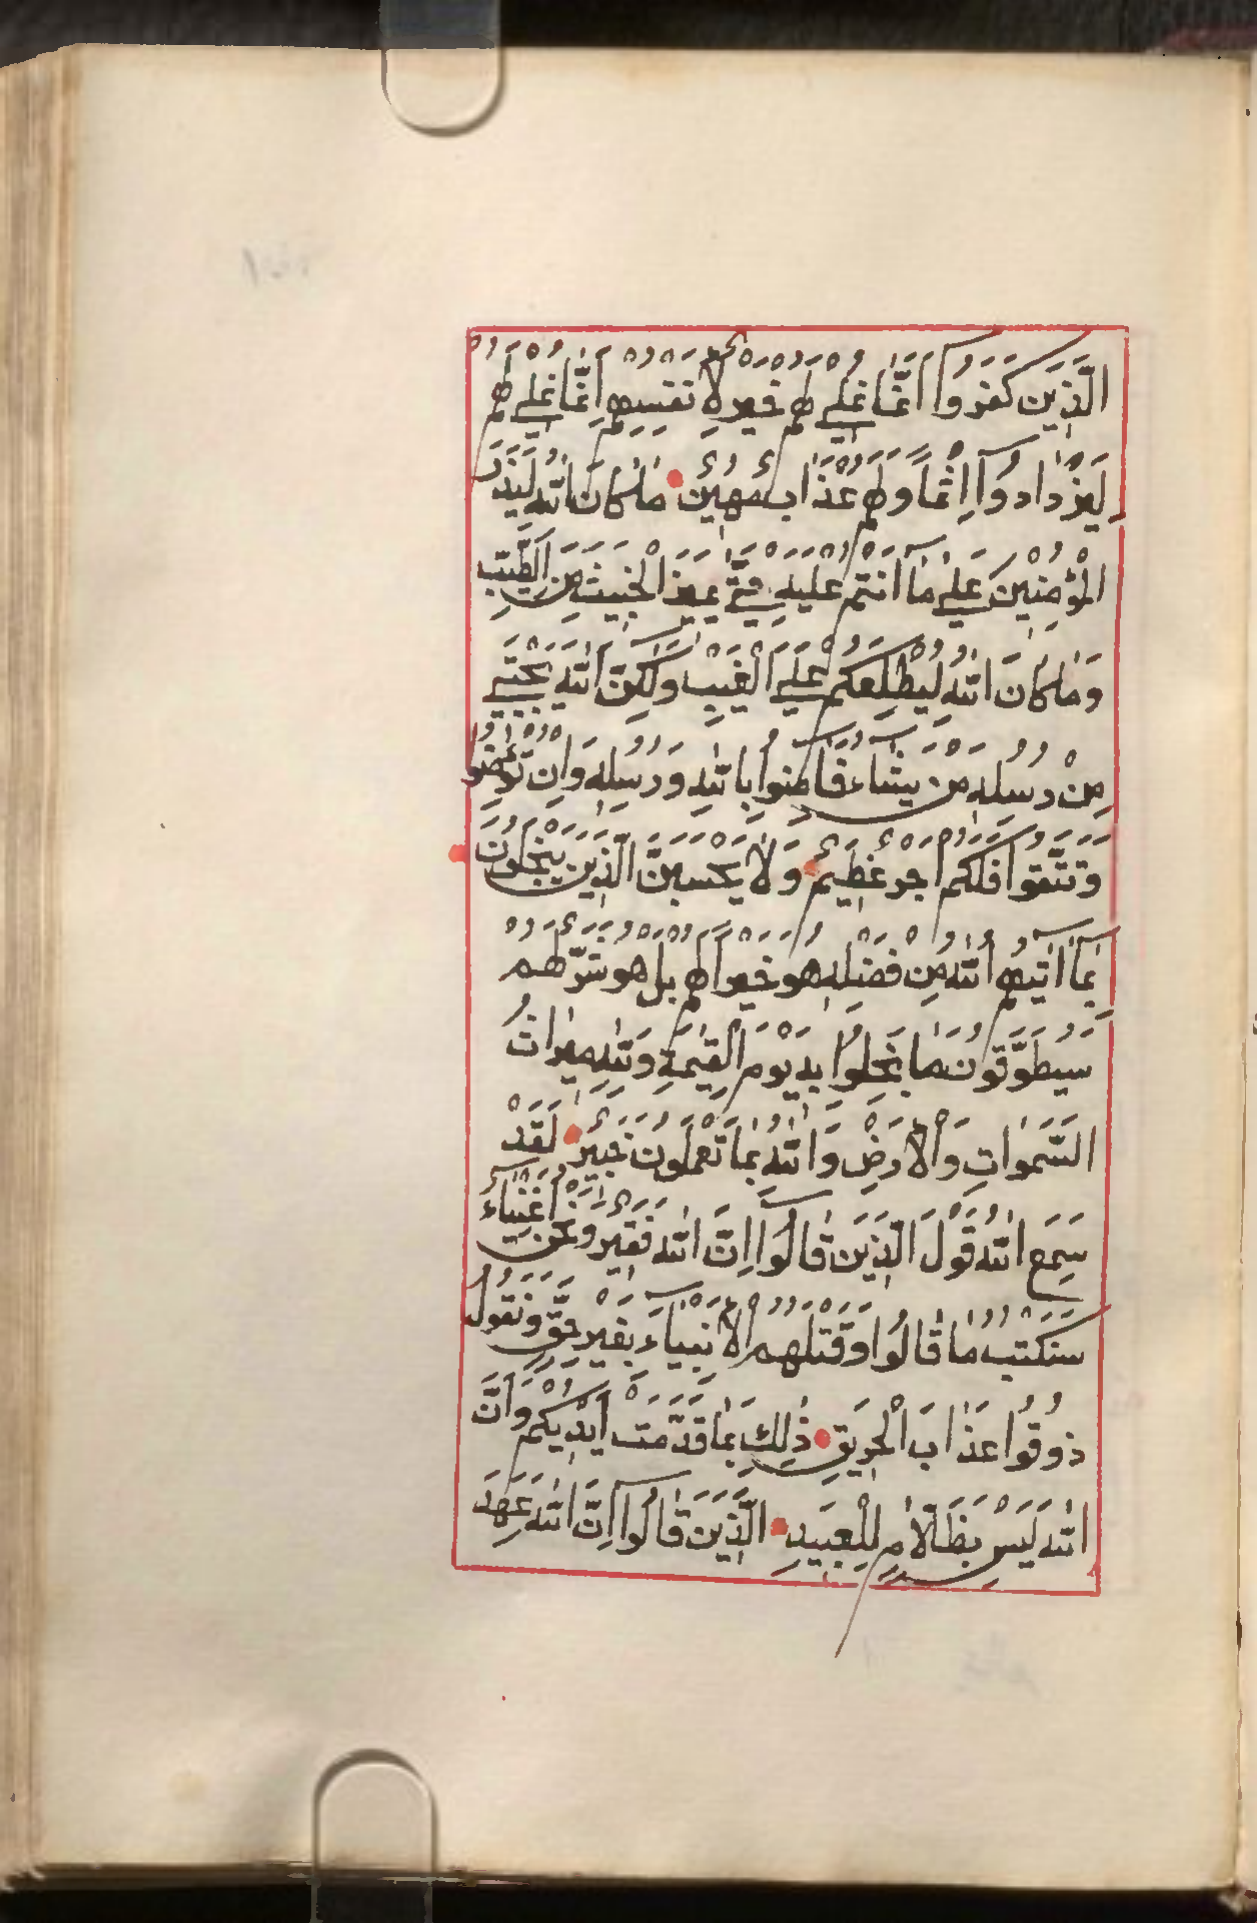 الَّذِينَ كَفَرُوا اَنَّمَا نُمْلِي لَهُمْ خَيْرٌ لِاَنْفُسِهِمْ اِنَّمَا نُمْلِي لَهُمْ
لِيَزْدَادُوا اِثْمًا وَلَهُمْ عَذَابٌ مُهِينٌ مَا كَانَ اللّٰهُ لِيَذَرَ
الْمُؤْمِنِينَ عَلٰى مَا اَنْتُمْ عَلَيْهِ حَتّٰى يَمِيزَ الْخَبِيثَ مِنَ الطَّيِّبِ
وَمَا كَانَ اللّٰهُ لِيُطْلِعَكُمْ عَلَى الْغَيْبِ وَلٰكِنَّ اللّٰهَ يَجْتَبِي
مِنْ رُسُلِهِ مَنْ يَشَاءُ فَاٰمِنُوا بِاللّٰهِ وَرُسُلِهِ وَاِنْ تُؤْمِنُوا
وَتَتَّقُوا فَلَكُمْ اَجْرٌ عَظِيمٌ وَلَا يَحْسَبَنَّ الَّذِينَ يَبْخَلُونَ
بِمَا اٰتٰيهُمُ اللّٰهُ مِنْ فَضْلِهِ هُوَ خَيْرًا لَهُمْ بَلْ هُوَ شَرٌّ لَهُمْ
سَيُطَوَّقُونَ مَا بَخِلُوا بِهِ يَوْمَ الْقِيٰمَةِ وَلِلّٰهِ مِيرَاثُ
السَّمٰوَاتِ وَالْاَرْضِ وَاللّٰهُ بِمَا تَعْمَلُونَ خَبِيرٌ لَقَدْ
سَمِعَ اللّٰهُ قَوْلَ الَّذِينَ قَالُوا اِنَّ اللّٰهَ فَقِيرٌ وَنَحْنُ اَغْنِيَاءُ
سَنَكْتُبُ مَا قَالُوا وَقَتْلَهُمُ الْاَنْبِيَاءَ بِغَيْرِ حَقٍّ وَنَقُولُ
ذُوقُوا عَذَابَ الْحَرِيقِ ذٰلِكَ بِمَا قَدَّمَتْ اَيْدِيكُمْ وَاَنَّ
اللّٰهَ لَيْسَ بِظَلَّامٍ لِلْعَبِيدِ الَّذِينَ قَالُوا اِنَّ اللّٰهَ عَهِدَ